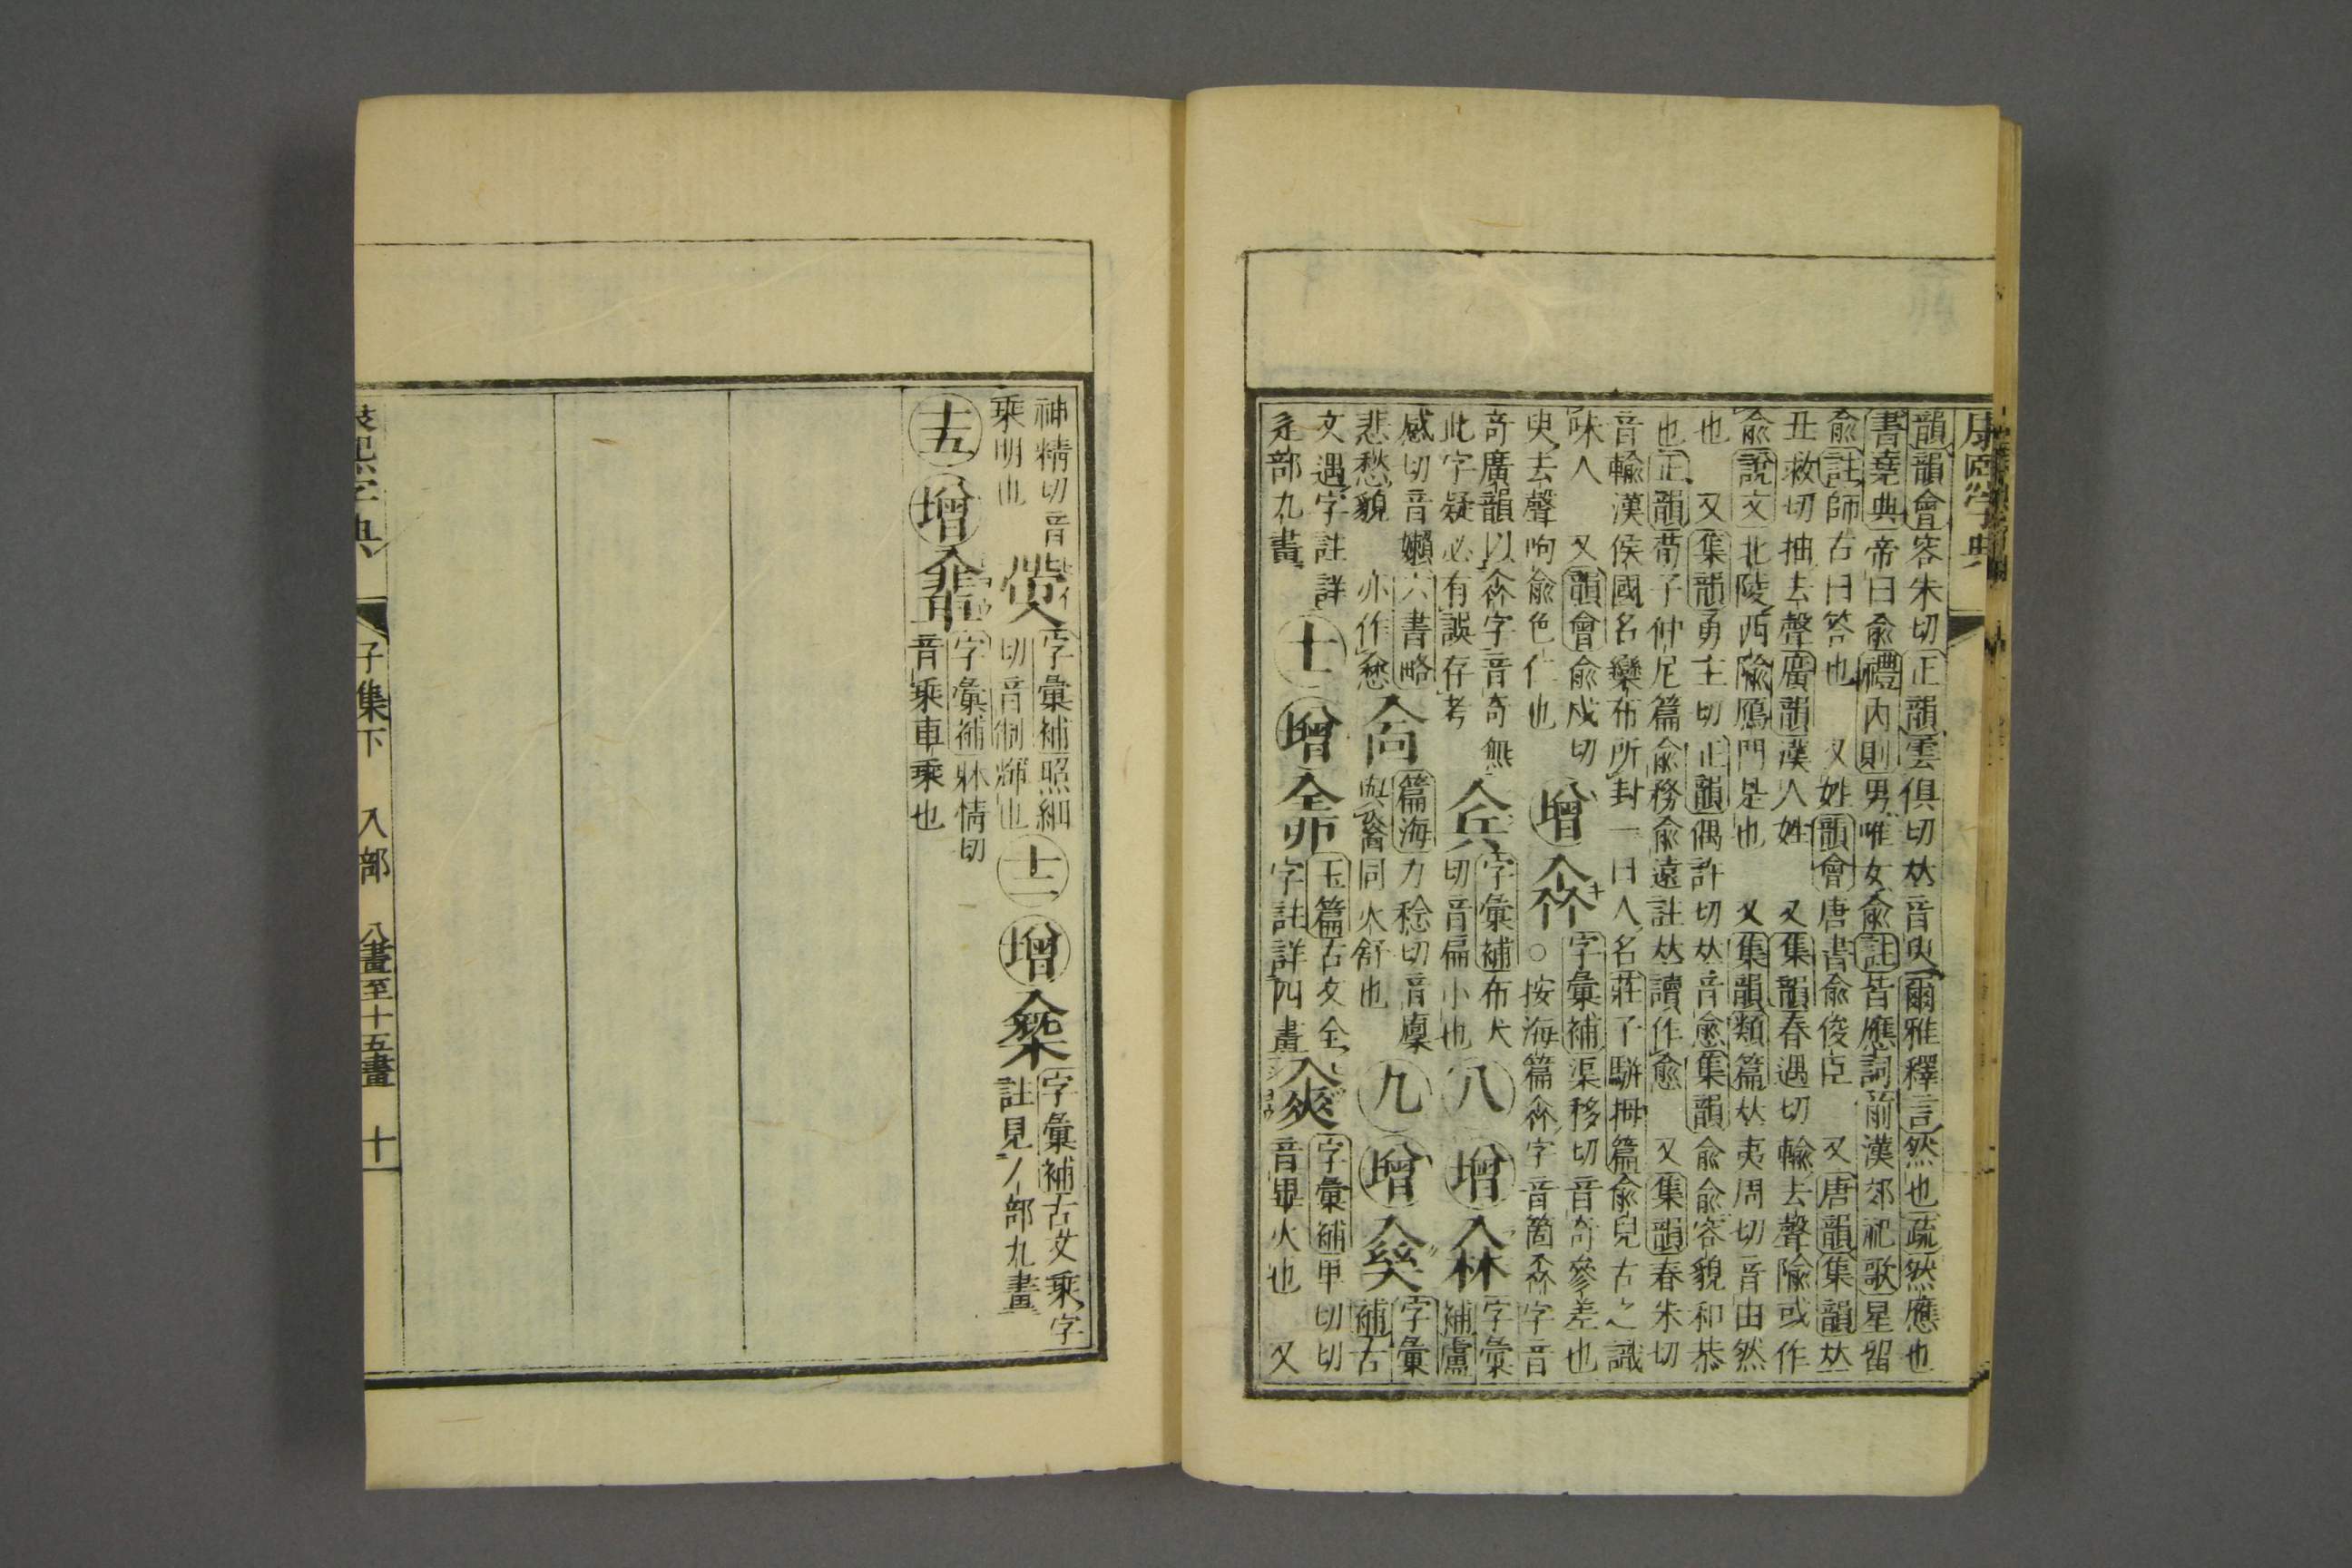 康熙字典
韻韻會容朱切正韻雲俱切𠀤音臾爾雅釋言然也疏然應也
書堯典帝曰兪禮內則男唯女兪註皆應詞前漢郊祀歌星留
兪註師古曰答也 又姓韻會唐書兪俊臣 又唐韻集韻𠀤
丑救切抽去聲廣韻漢人姓 又集韻春遇切輸去聲隃或作
兪說文北陵西隃鴈門是也 又集韻類篇𠀤夷周切音由然
也 又集韻勇主切正韻偶許切𠀤音愈集韻兪兪容貌和恭
也正韻荀子仲尼篇兪務兪遠註𠀤讀作愈 又集韻春朱切
音輸漢侯國名欒布所封一曰人名莊子騈拇篇兪兒古之識
味人 又韻會兪戍切
臾去聲呴兪色仁也
增
字彙補渠移切音奇參差也
○按海篇𠓔字音箇𠈌字音
奇廣韻以𠓔字音奇無
此字疑必有誤存考
字彙補布犬
切音扁小也
八
增
字彙
補盧
感切音㜮六書略
悲愁貌 亦作愁
篇海力稔切音廩
與㐭同火舒也
九
增
字彙
補古
文遇字註詳
辵部九畫
十
增
玉篇古文全
字註詳四畫
字彙補畢切切
音畢火也 又
神精切音
乘明也
字彙補照細
切音制輝也
十二
增
字彙補古文乘字
註見丿部九畫
十五
增
字彙補牀情切
音乘車乘也
康熙字典
子集下 入部 八畫至十五畫 十